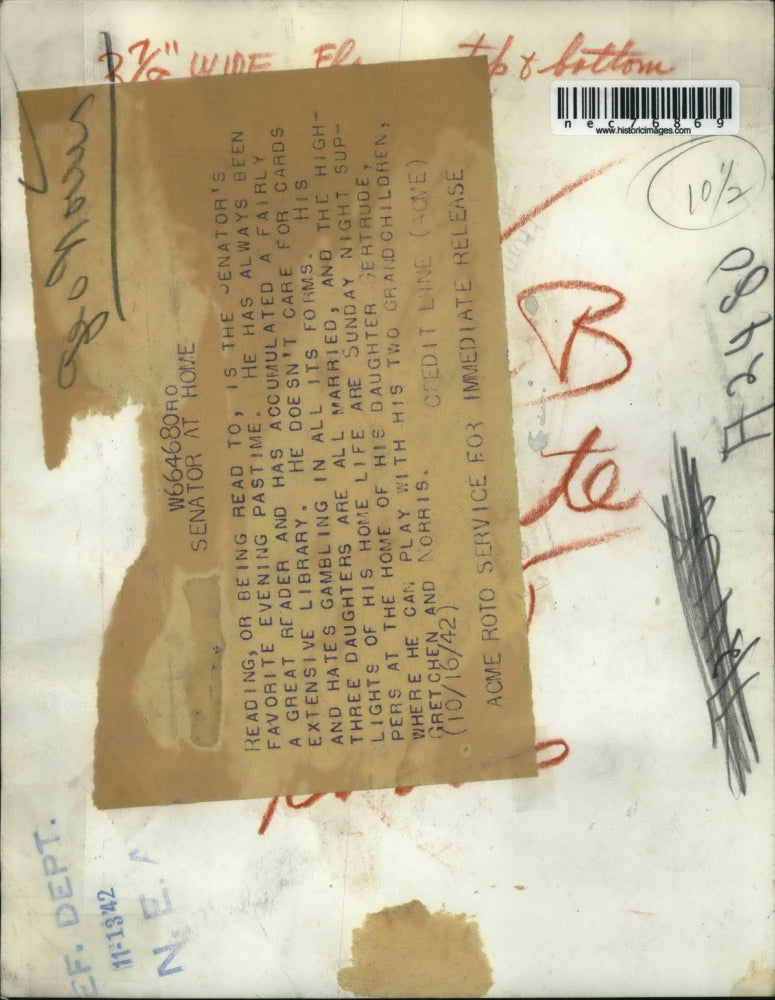 3 7/8" WIDE top & bottom
nec76869
www.historicimages.com
10 1/2
Geo Norris
W664680RO
SENATOR AT HOME
READING, OR BEING READ TO, IS THE SENATOR'S
FAVORITE EVENING PASTIME. HE HAS ALWAYS BEEN
A GREAT READER AND HAS ACCUMULATED A FAIRLY
EXTENSIVE LIBRARY. HE DOESN'T CARE FOR CARDS
AND HATES GAMBLING IN ALL ITS FORMS. HIS
THREE DAUGHTERS ARE ALL MARRIED, AND THE HIGH-
LIGHTS OF HIS HOME LIFE ARE SUNDAY NIGHT SUP-
PERS AT THE HOME OF HIS DAUGHTER GERTRUDE,
WHERE HE CAN PLAY WITH HIS TWO GRANDCHILDREN,
GRETCHEN AND NORRIS. CREDIT LINE (ACME)
(10/16/42)
ACME ROTO SERVICE FOR IMMEDIATE RELEASE
B
te
A2480
EF. DEPT.
11-13'42
N. E. A